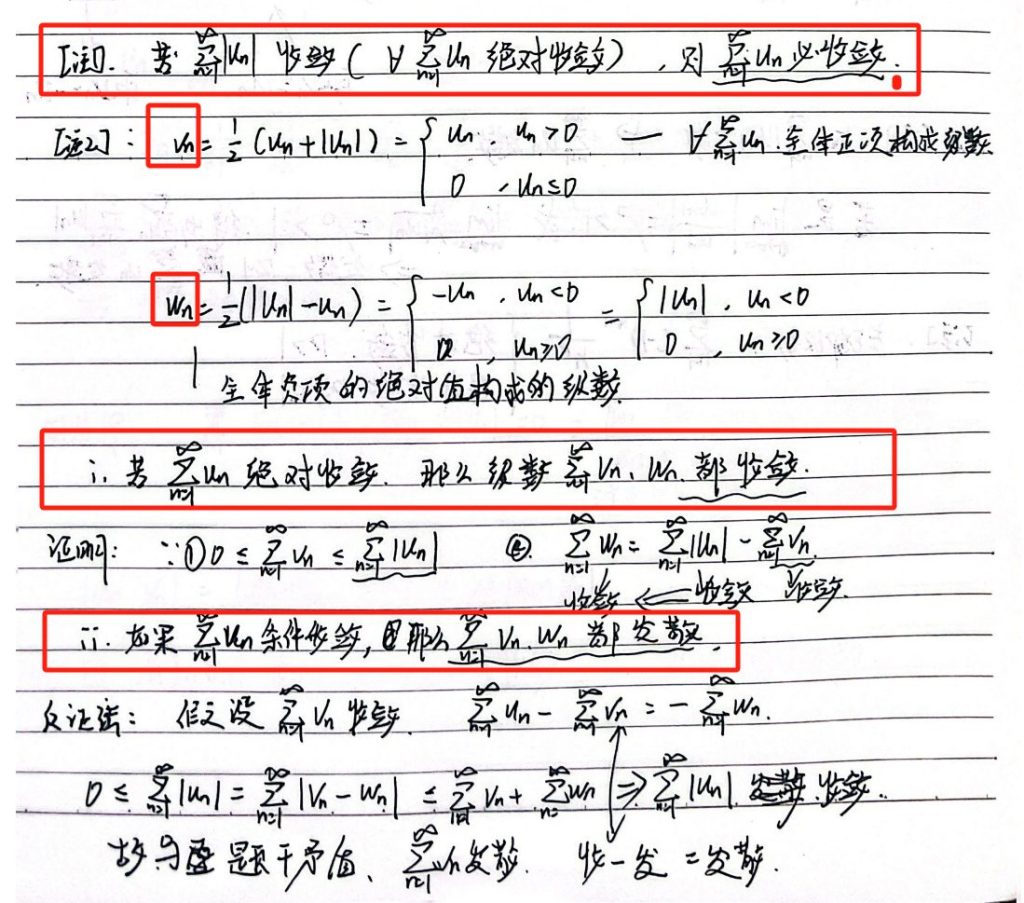 [注1]. 若 ∑_{n=1}^{∞}|uₙ| 收敛 ( ∀ ∑_{n=1}^{∞} uₙ 绝对收敛 ) , 则 ∑_{n=1}^{∞} uₙ 必收敛.
[注2]: vₙ = 1/2 (uₙ+|uₙ|) = { uₙ, uₙ>0 — ∀ ∑_{n=1}^{∞} uₙ 全体正项构成级数
0 , uₙ≤0
wₙ = 1/2 (|uₙ|-uₙ) = { -uₙ , uₙ<0 = { |uₙ| , uₙ<0
0 , uₙ≥0 0 , uₙ≥0
全体负项的绝对值构成的级数.
i. 若 ∑_{n=1}^{∞} uₙ 绝对收敛. 那么级数 ∑_{n=1}^{∞} vₙ、wₙ 都收敛.
证明: ∵ ① 0 ≤ ∑_{n=1}^{∞} vₙ ≤ ∑_{n=1}^{∞} |uₙ| ②. ∑_{n=1}^{∞} wₙ = ∑_{n=1}^{∞} |uₙ| - ∑_{n=1}^{∞} vₙ.
收敛 ⇐ 收敛 收敛.
ii. 如果 ∑_{n=1}^{∞} uₙ 条件收敛, 那么 ∑_{n=1}^{∞} vₙ. wₙ 都发散.
反证法: 假设 ∑_{n=1}^{∞} vₙ 收敛. ∑_{n=1}^{∞} uₙ - ∑_{n=1}^{∞} vₙ = - ∑_{n=1}^{∞} wₙ.
0 ≤ ∑_{n=1}^{∞} |uₙ| = ∑_{n=1}^{∞} |vₙ - wₙ| ≤ ∑_{n=1}^{∞} vₙ + ∑_{n=1}^{∞} wₙ ⇒ ∑_{n=1}^{∞} |uₙ| 收敛.
故与题干矛盾、 ∑_{n=1}^{∞} vₙ 发散. 收-发=发散.